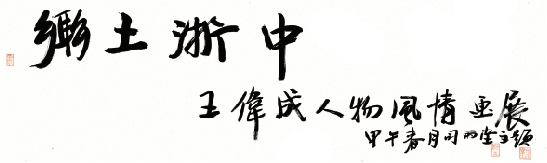 鄉土浙中
王偉成人物風情画展
甲午春月